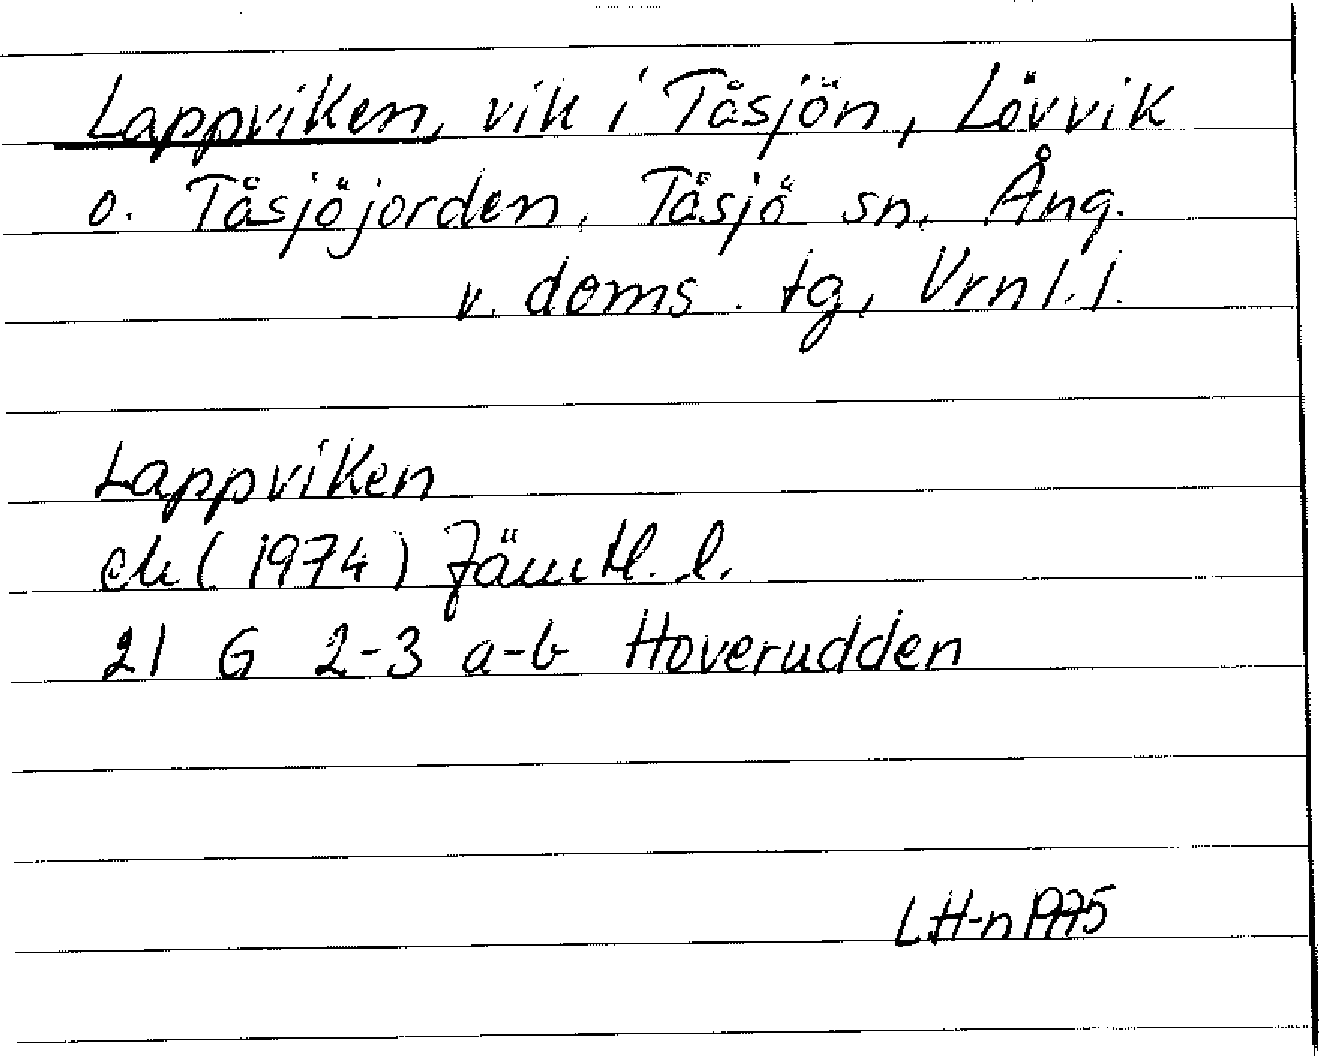 Lappviken, vik i Tåsjön, Lövvik
o. Tåsjöjorden, Tåsjö sn, Ång.
v. doms. tg, Vrnl. l.
Lappviken
ek (1974) Jämtl. l.
21 G 2-3 a-b Hoverudden
LH-n 1975